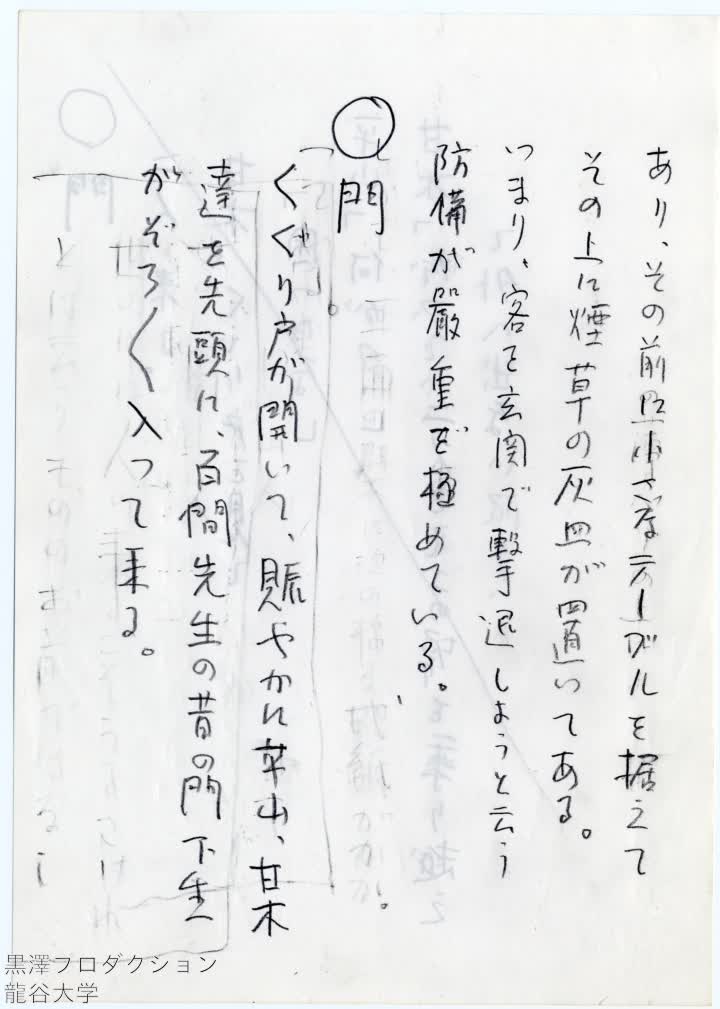 あり、その前に小さなテーブルを据えて
その上に煙草の灰皿が置いてある。
つまり、客を玄関で撃退しようと云う
防備が嚴重を極めている。
○門
くぐり戸が開いて、賑やかに平山、甘木
達を先頭に、百閒先生の昔の門下生
がぞろ〱入って来る。
黒澤プロダクション
龍谷大学